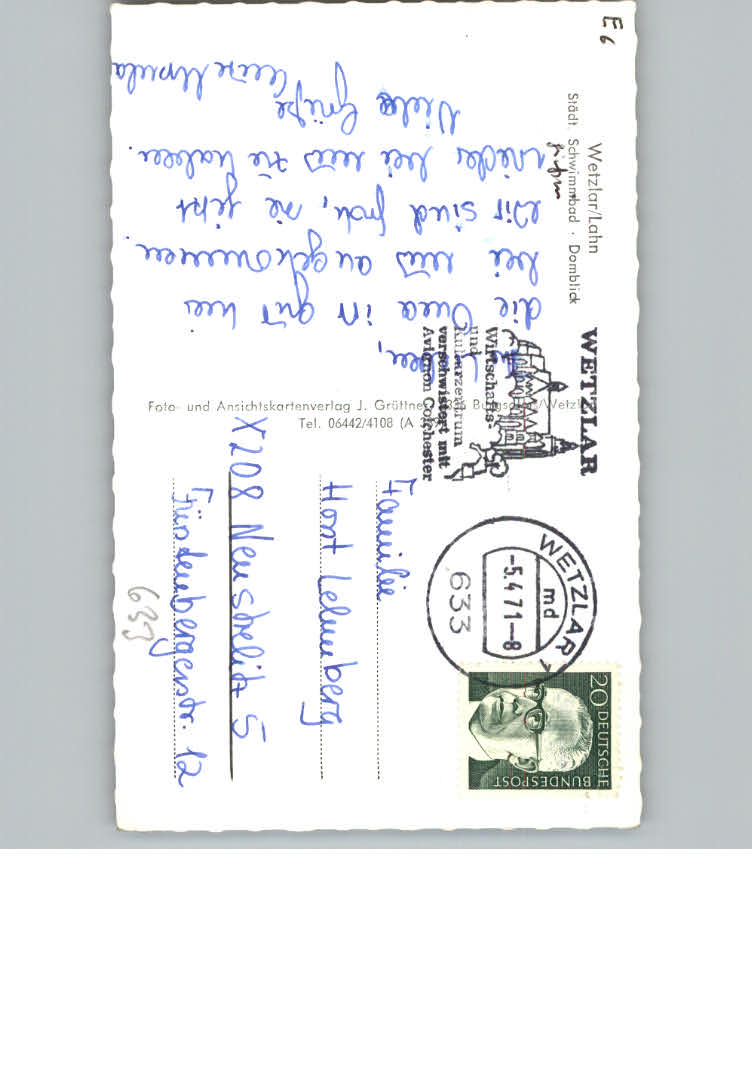 E6
Wetzlar/Lahn
Städt. Schwimmbad · Domblick
die Oma ist gut hier
bei uns angekommen.
Wir sind froh, sie jetzt
wieder bei uns zu haben.
Viele Grüße
Ursula
Foto- und Ansichtskartenverlag J. Grüttner
Tel. 06442/4108 (A
WETZLAR
Wirtschafts-
und
Kulturzentrum
verschwistert mit
Avignon Colchester
WETZLAR 1
md
-5.4.71-8
633
20 DEUTSCHE
BUNDESPOST
Familie
Horst Lehmberg
X208 Neustrelitz 5
Fürstenbergerstr. 12
633